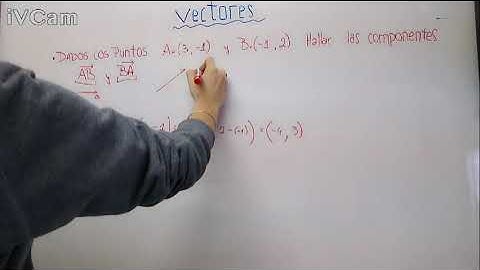 iVCam
Vectores
• DADOS LOS PUNTOS A=(3, -1) y B=(-1, 2) Hallar las componentes
AB y BA
-(-1)) = (-4, 3)